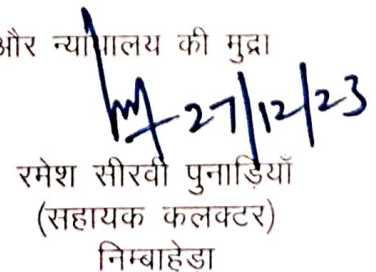 और न्यायालय की मुद्रा
27/12/23
रमेश सीरवी पुनाड़ियाँ
(सहायक कलक्टर)
निम्बाहेडा